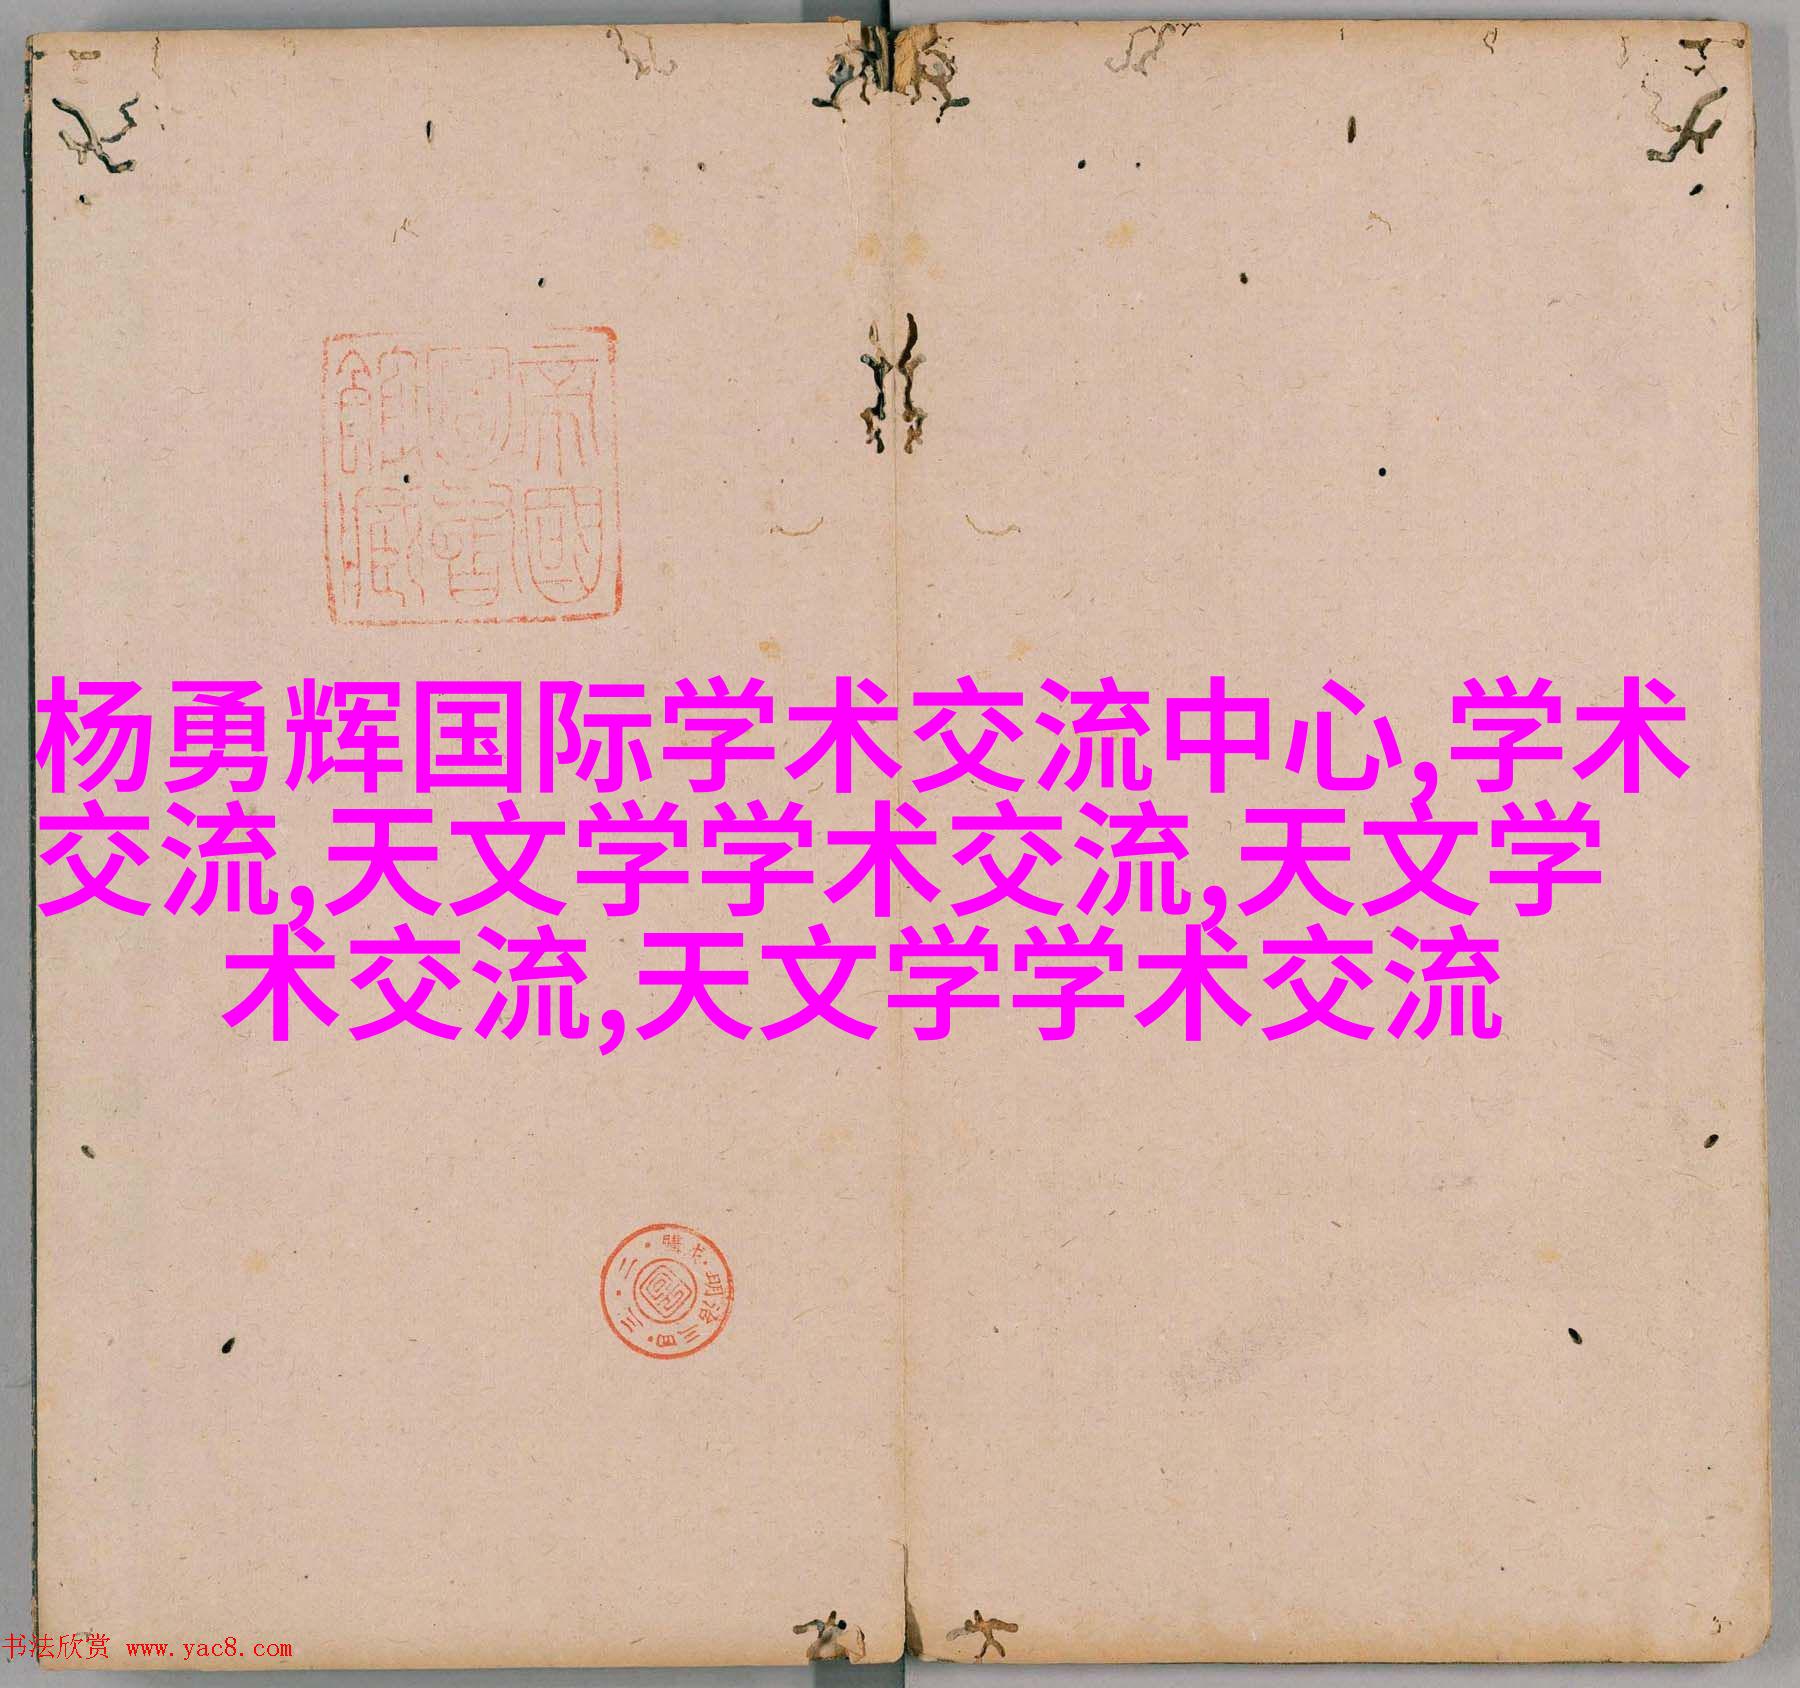 杨勇辉国际学术交流中心,学术
交流,天文学学术交流,天文学
术交流,天文学学术交流
帝國
圖書
館藏
購求·明治三四·三·二·
书法欣赏 www.yac8.com